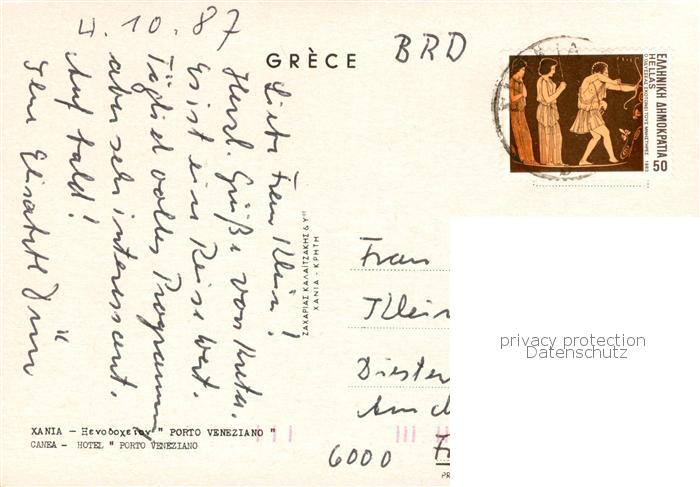 4.10.87
Liebe Frau Klein!
Herzl. Grüße von Kreta.
Es ist eine Reise wert.
Täglich volles Programm,
aber sehr interessant.
Auf bald!
Ihre Elisabeth
GRÈCE
BRD
ΕΛΛΗΝΙΚΗ ΔΗΜΟΚΡΑΤΙΑ 50
HELLAS
Ο ΟΔΥΣΣΕΑΣ ΣΚΟΤΩΝΕΙ ΤΟΥΣ ΜΝΗΣΤΗΡΕΣ 1983
ΖΑΧΑΡΙΑΣ ΚΑΛΑΪΤΖΑΚΗΣ & Υιοί
ΧΑΝΙΑ - ΚΡΗΤΗ
Frau
Klein
Diester
Am
6000 Fr
privacy protection
Datenschutz
ΧΑΝΙΑ - Ξενοδοχεῖον " PORTO VENEZIANO "
CANEA - HOTEL " PORTO VENEZIANO
PR